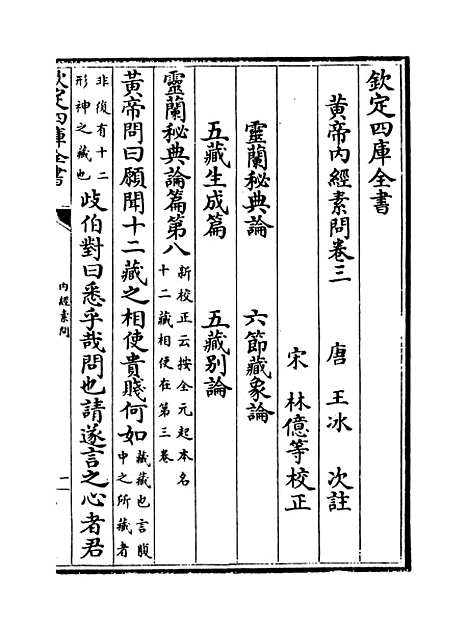 欽定四庫全書
黃帝內經素問卷三
唐 王冰 次註
宋 林億等校正
靈蘭秘典論 六節藏象論
五藏生成篇 五藏别論
靈蘭秘典論篇第八新校正云按全元起本名十二藏相使在第三卷
黃帝問曰願聞十二藏之相使貴賤何如藏藏也言腹中之所藏者
非復有十二形神之藏也歧伯對曰悉乎哉問也請遂言之心者君
欽定四庫全書
內經素問
二